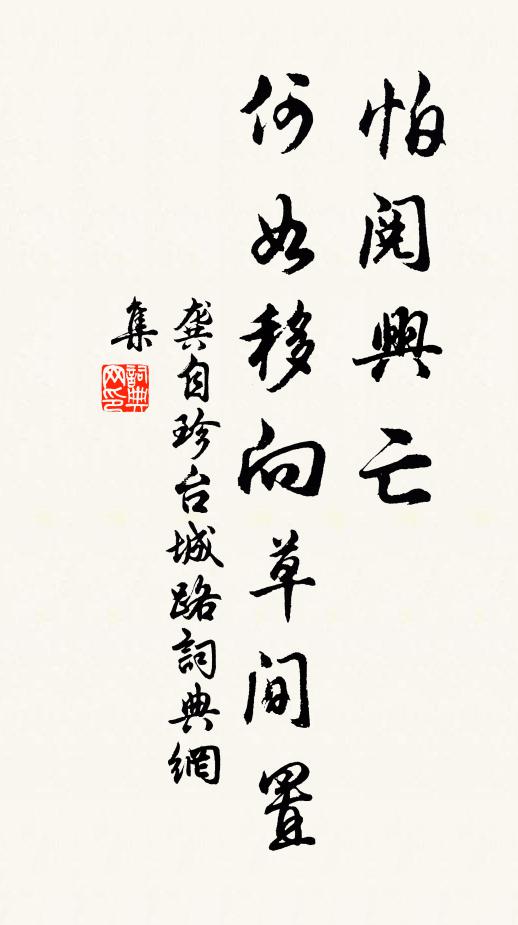 怕閱興亡
何如移向草間置
龔自珍台城路詞典網
集
詞典網印